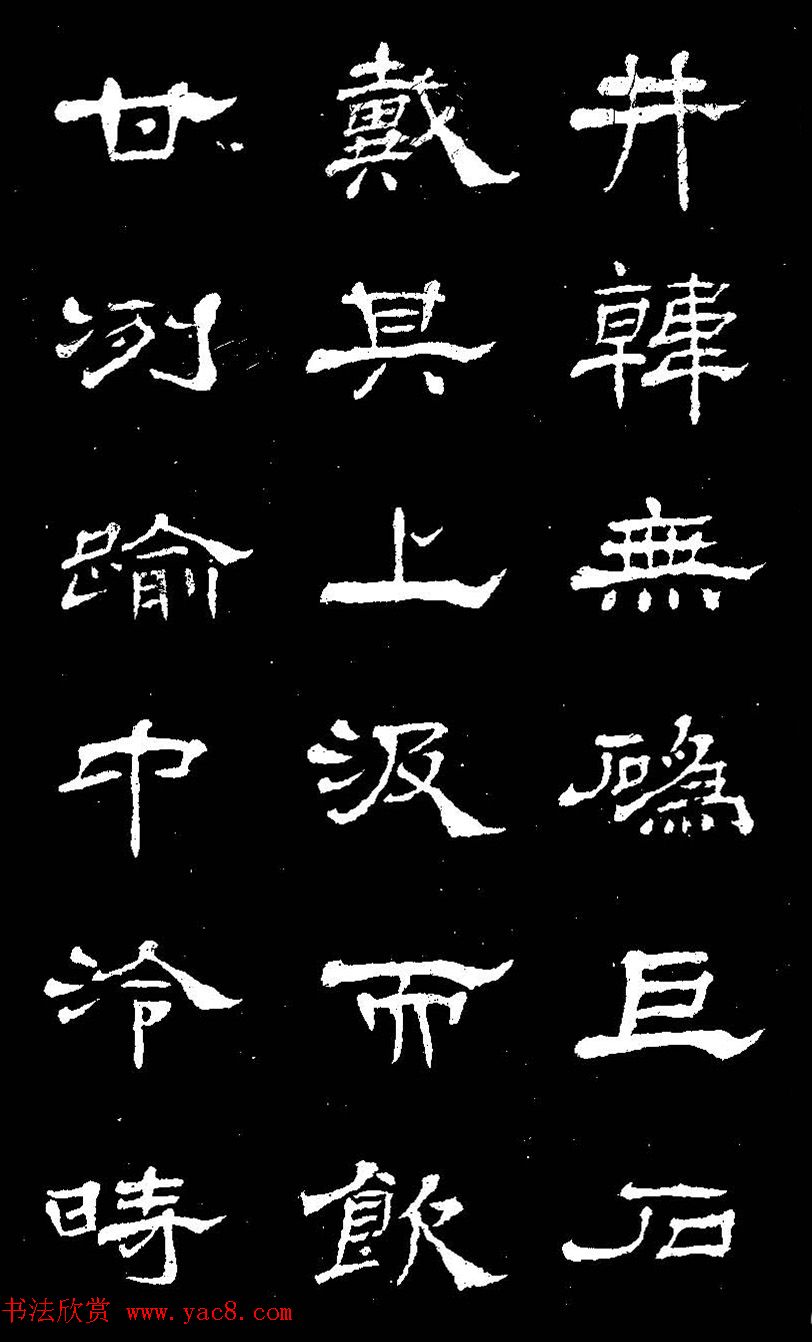 井韓無碼巨石
戴其上汲而飲
甘冽踰中泠時
书法欣赏 www.yac8.com